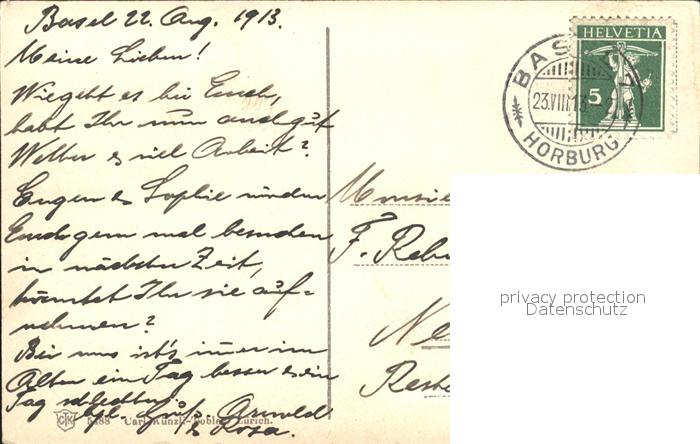 Basel 22. Aug. 1913.
Meine Lieben!
Wie geht es bei Euch,
habt Ihr nun auch gut
Wetter & viel Arbeit?
Eugen & Sophie würden
Euch gern mal besuchen
in nächster Zeit,
könntet Ihr sie auf=
nehmen?
Bei uns ist's immer im
Alten ein Tag besser & ein
Tag schlechter.
hzl. Gruß
& Rosa.
5188 Carl Künzli-Tobler, Zürich.
CTK
HELVETIA
5
BASEL
23.VIII.13
HORBURG
Monsie
F. Rebe
Ne
Reste
privacy protection
Datenschutz